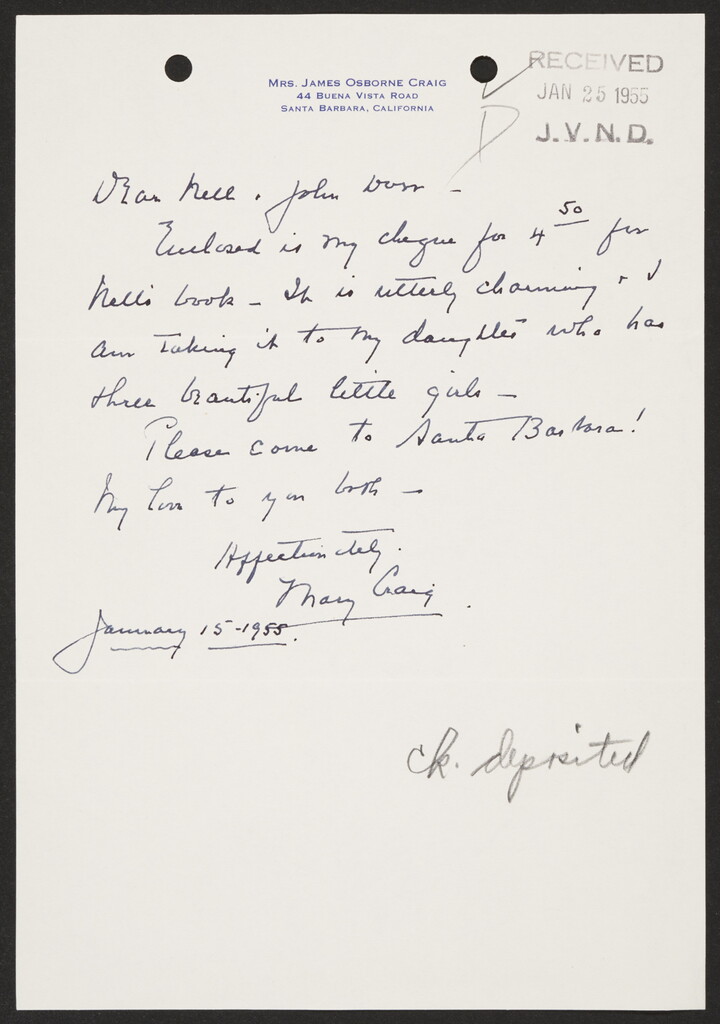 MRS. JAMES OSBORNE CRAIG
44 BUENA VISTA ROAD
SANTA BARBARA, CALIFORNIA
RECEIVED
JAN 25 1955
J.V.N.D.
Dear Nell + John Dorr –
Enclosed is my cheque for 4 50 for
Nell's book – It is utterly charming + I
am taking it to my daughter who has
three beautiful little girls –
Please come to Santa Barbara!
My love to you both –
Affectionately.
Mary Craig.
January 15 - 1955.
ck. deposited